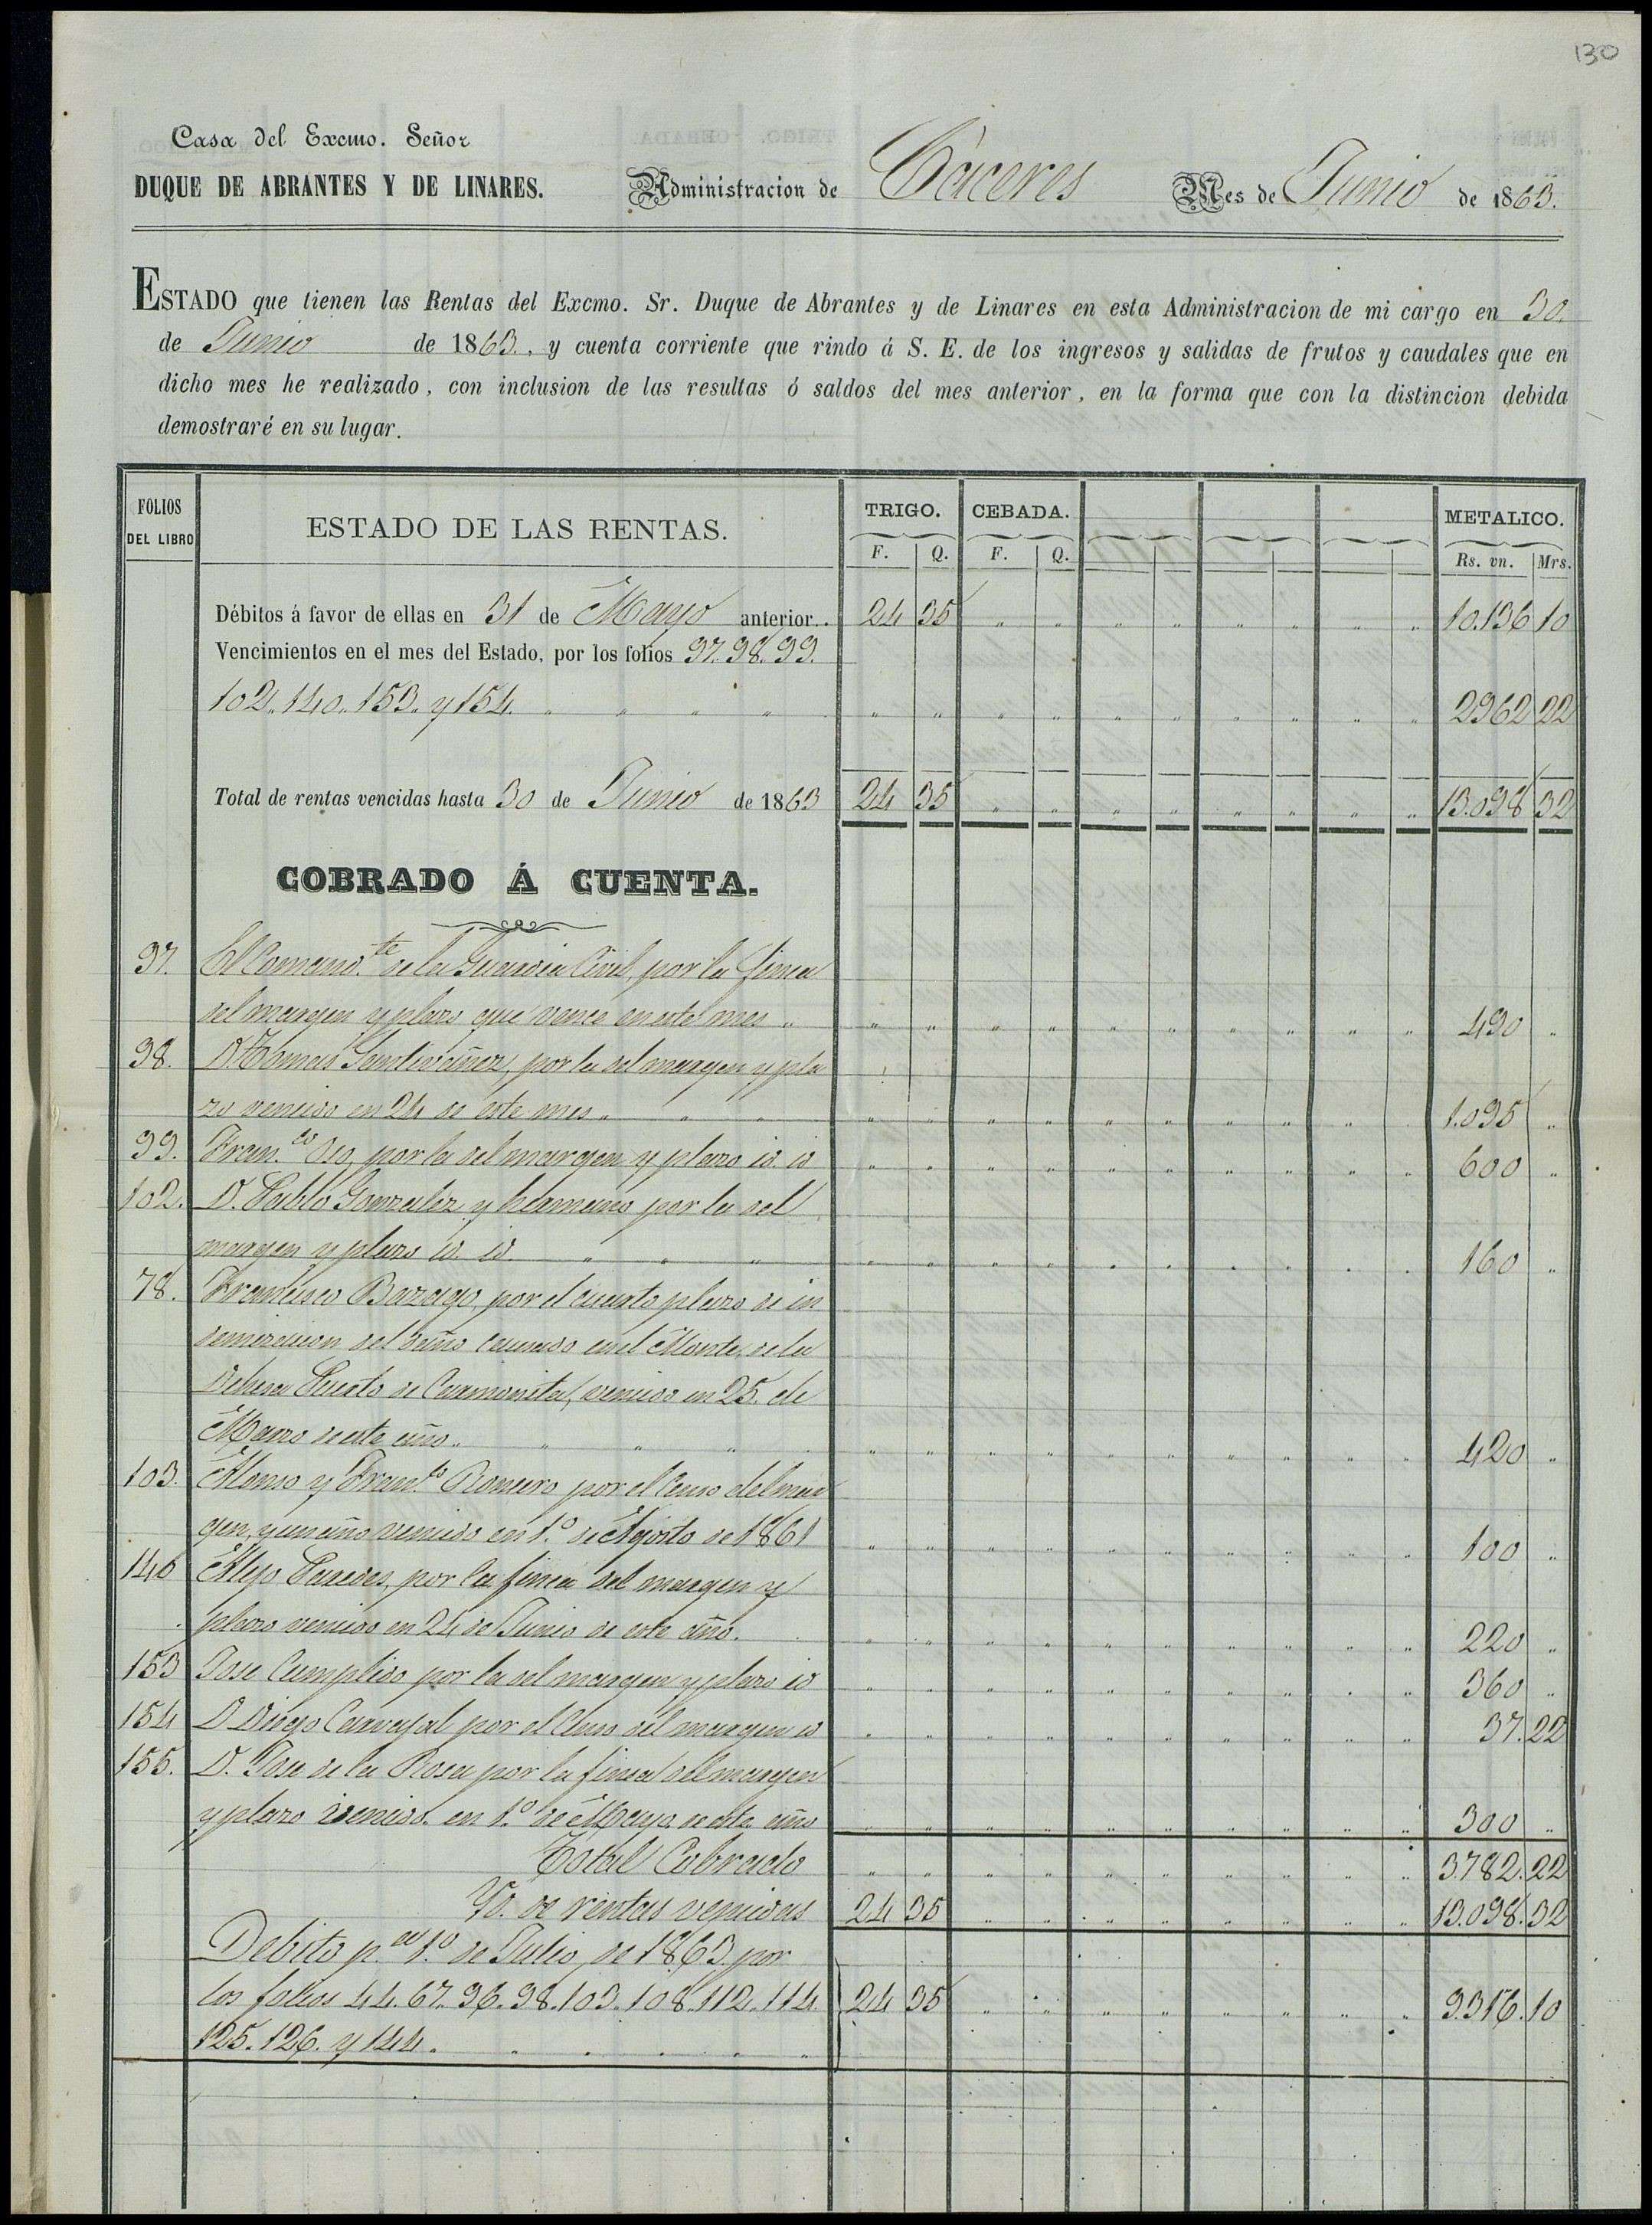 130
Casa del Excmo. Señor
DUQUE DE ABRANTES Y DE LINARES. Administracion de Cáceres Mes de Junio de 1863.
ESTADO que tienen las Rentas del Excmo. Sr. Duque de Abrantes y de Linares en esta Administracion de mi cargo en 30.
de Junio de 1863., y cuenta corriente que rindo á S. E. de los ingresos y salidas de frutos y caudales que en
dicho mes he realizado, con inclusion de las resultas ó saldos del mes anterior, en la forma que con la distincion debida
demostraré en su lugar.
FOLIOS DEL LIBRO ESTADO DE LAS RENTAS. TRIGO. CEBADA. METALICO.
F. Q. F. Q. Rs. vn. Mrs.
Débitos á favor de ellas en 31 de Mayo anterior.. 24 35 " " " " " " " " 10.136 10
Vencimientos en el mes del Estado, por los folios 97. 98. 99.
102. 140. 153. y 154. " " " " " " " " " " " " " " 2962 22
Total de rentas vencidas hasta 30 de Junio de 1863 24 35 " " " " " " " " 13.098 32
COBRADO Á CUENTA.
97. El Comand.te de la Guardia Civil, por la finca
del margen y plazo que vence en este mes " " " " " " " " " " " 490 "
98. D. Tomas Santivañez, por la del margen y pla
zo vencido en 24 de este mes " " " " " " " " " " " " " 1.095 "
99. Fran.co por la del margen y plazo id. id " " " " " " " " " " 600 "
102. D. Pablo Gonzalez y hermanos por la del
margen y plazo id. id. " " " " " " " " " " " " " 160 "
78. Francisco Bazago, por el cuarto plazo de in
demizacion del daño causado en el Monte de la
Dehesa Puerto de Carmonita, vencido en 25. de
Marzo de este año. " " " " " " " " " " " " " 420 "
103. Alonso y Fran.co Romero por el Censo del mar
gen, y un año vencido en 1.o de Agosto de 1861 " " " " " " " " " " 100 "
140 Alejo Paredes, por la finca del margen y
plazo vencido en 24 de Junio de este año. " " " " " " " " " " 220 "
153 Jose Cumplido por la del margen y plazo id " " " " " " " " " " 360 "
154 D Diego Carvajal por el Censo del margen id " " " " " " " " " " 37. 22
155. D. Jose de la Rosa por la finca del margen
y plazo vencido. en 1.o de Mayo de este año " " " " " " " " " " 300 "
Total Cobrado " " " " " " " " " " 3782. 22
Yd. de rentas vencidas 24 35 " " " " " " " " 13.098. 32
Debito p.a 1.o de Julio de 1863. por
los folios 44. 67. 96. 98. 103. 108. 112. 114 24 35 " " " " " " " " 9.316. 10
125. 126. y 144.